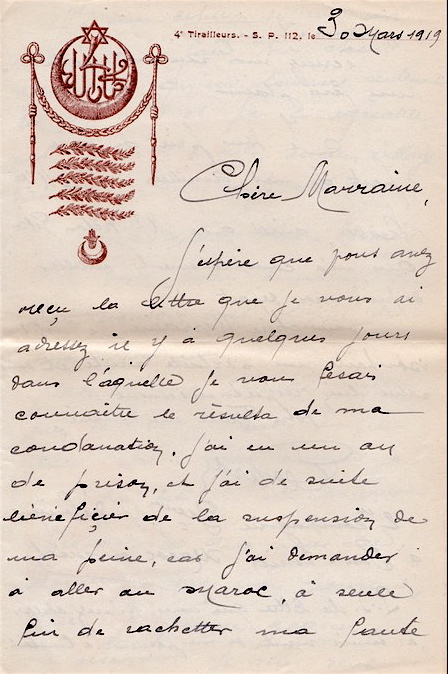 4e Tirailleurs. - S. P. 112, le 30 Mars 1919
Chère Marraine,
J'espère que vous avez
reçu la lettre que je vous ai
adressez il y à quelques jours
dans l'aquelle je vous fesais
connaitre le résulta de ma
condanation. J'ai eu un an
de prison, et j'ai de suite
bénéficier de la suspension de
ma peine, car j'ai demander
à aller au Maroc, à seule
fin de rachetter ma faute